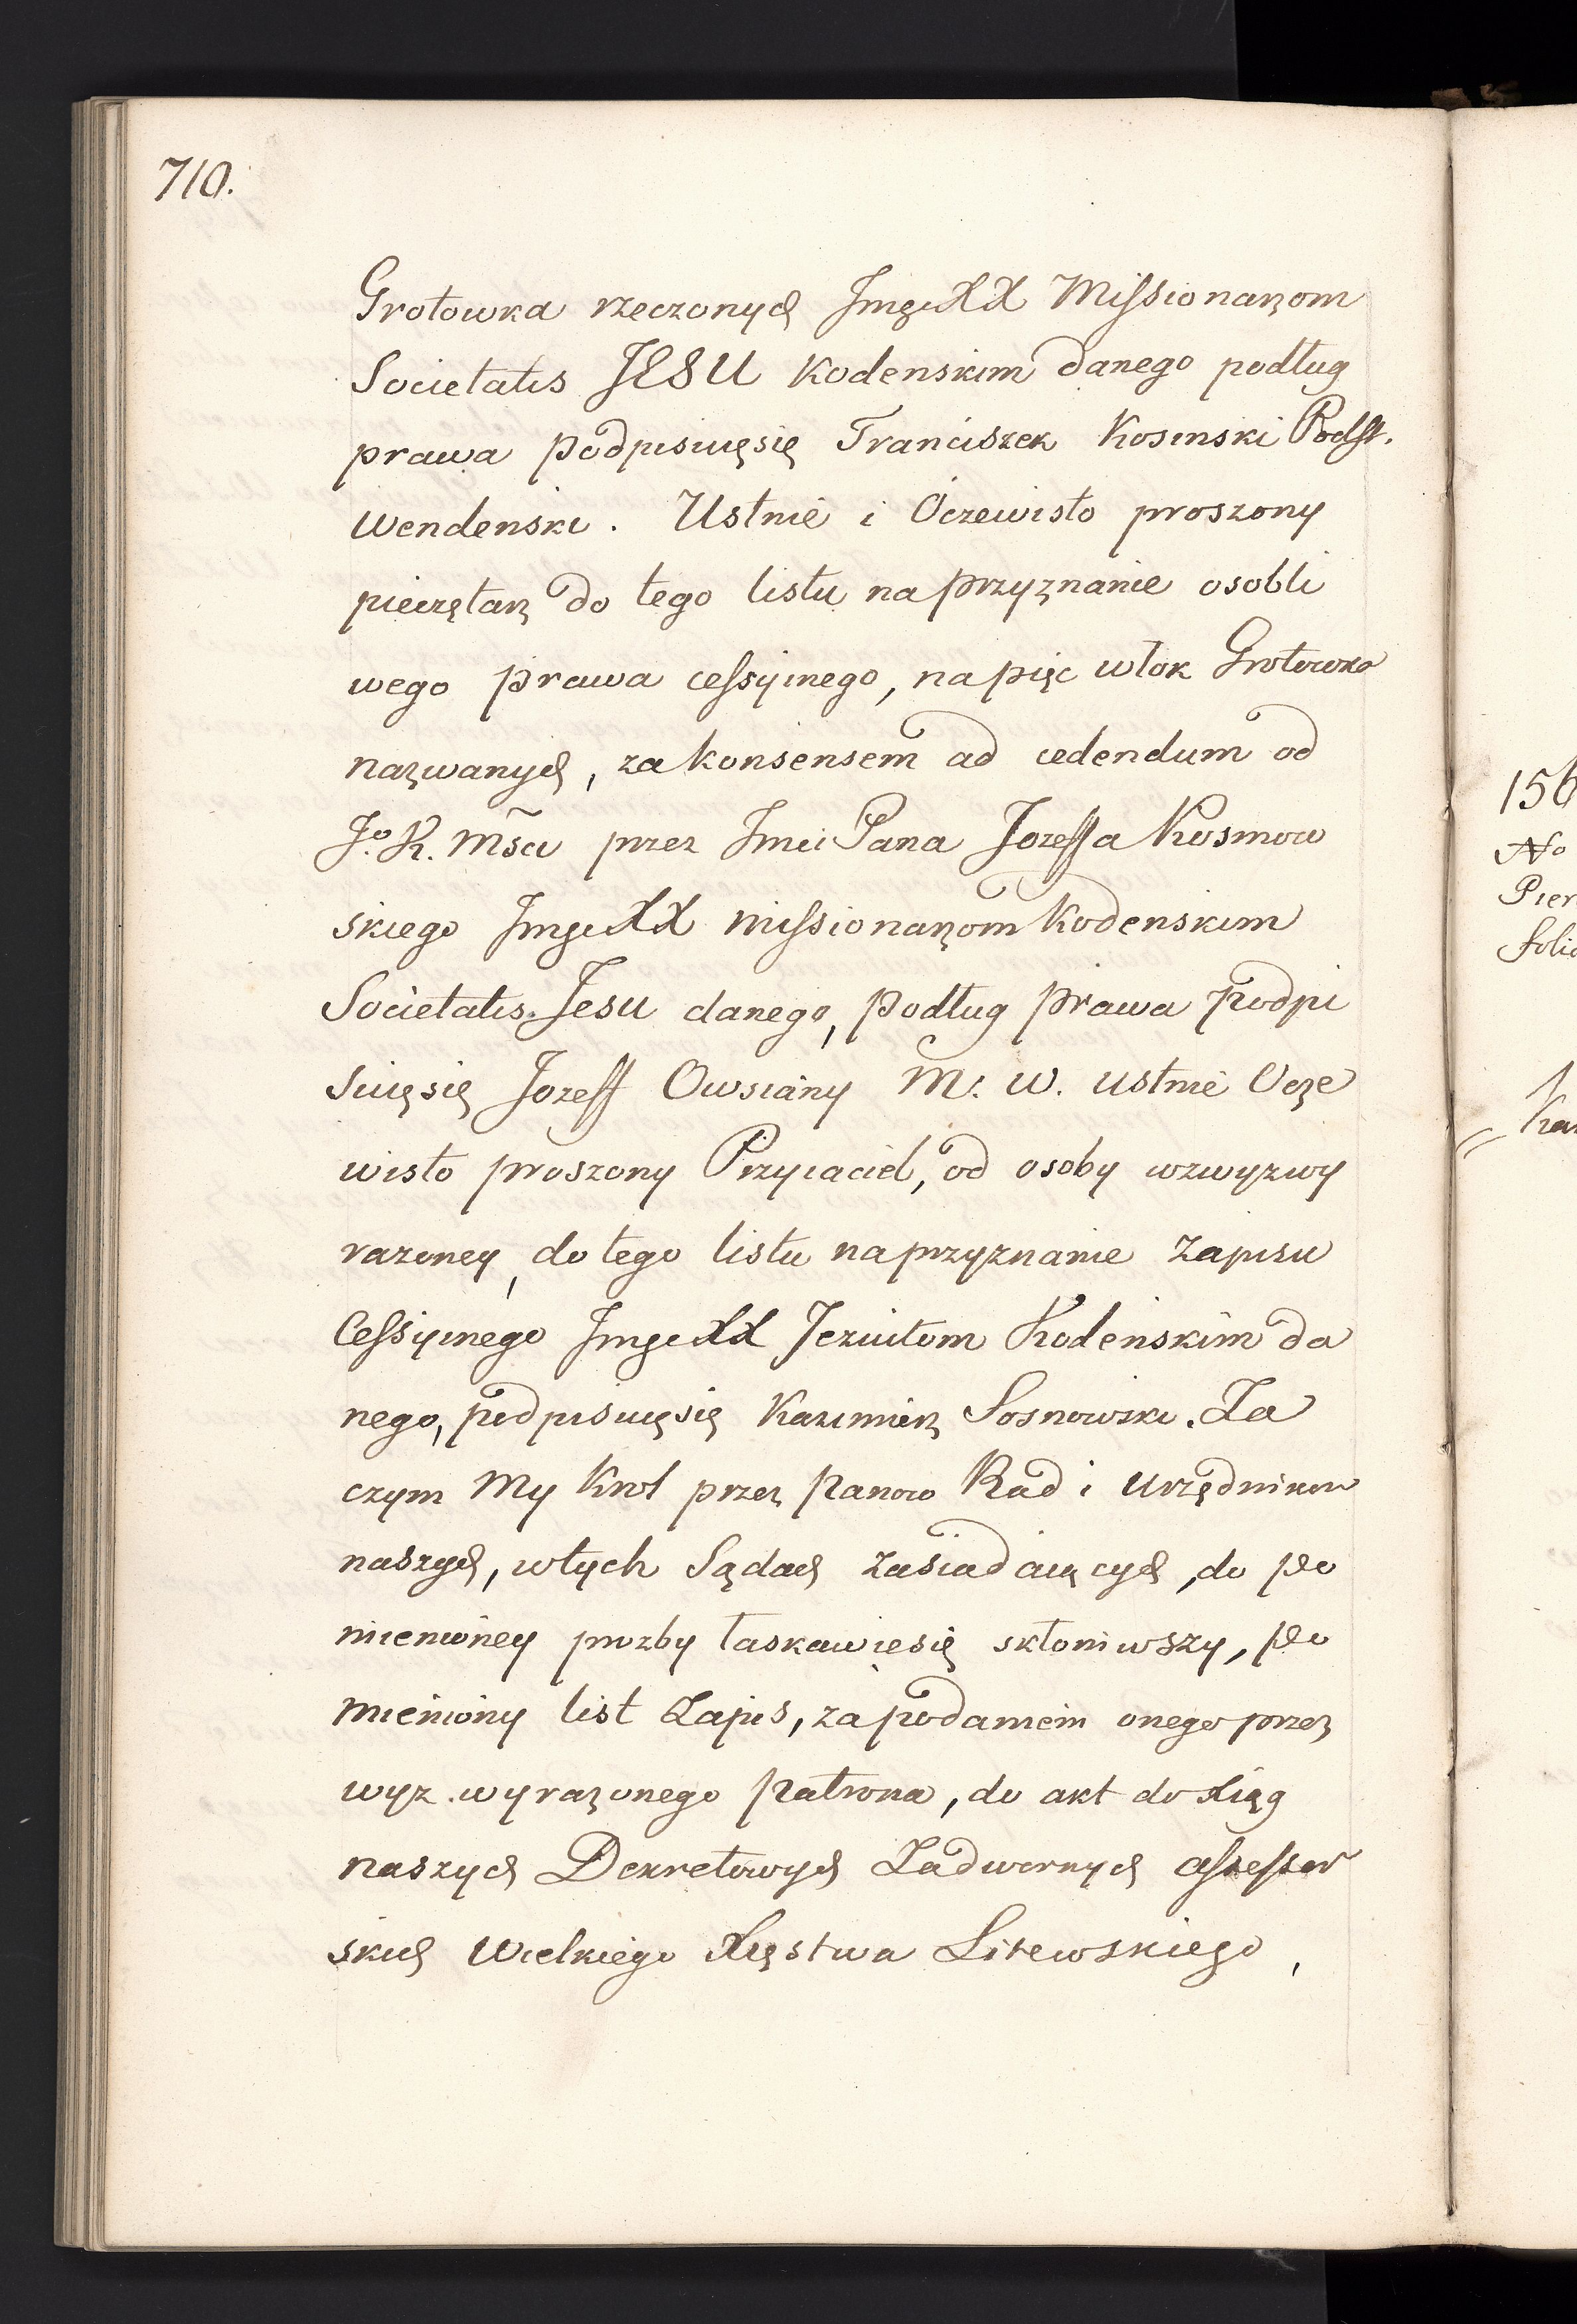 710.
Grotowka rzeczonych Jmci XX Missionarzom
Societatis JESU Kodenskim danego podług
prawa podpisuięsię Franciszek Kosinski Podst.
Wendenski. Ustnie i Oczewisto proszony
pieczętarz do tego listu na przyznanie osobli
wego prawa cessyinego, na pięc włok Grotowka
nazwanych, za konsensem ad cedendum od
J. K. Msci przez Jmci Pana Jozeffa Kosmow
skiego Jmci XX missionarzom Kodenskim
Societatis Jesu danego, podług prawa podpi
suięsię Jozeff Owsiány M. W. ustnie Ocze
wisto proszony Przyiaciel, od osoby wzwyzwy
razoney, do tego listu na przyznanie Zapisu
Cessyinego Jmci XX Jezuitom Kodenskim da
nego, podpisuięsię Kazimierz Sosnowski. Za
czym My Krol przez Panow Rad i Urzędnikow
naszych, wtych Sądach zasiadaiących, do po
mienioney prozby łaskawiesię skłoniwszy, po
mieniony list Zapis, za podaniem onego przez
wyz wyrazonego patrona, do akt do Xiąg
naszych Dekretowych Zadwornych assessor
skich Wielkiego Xięstwa Litewskiego,
156
No
Pier
folio
Kaz